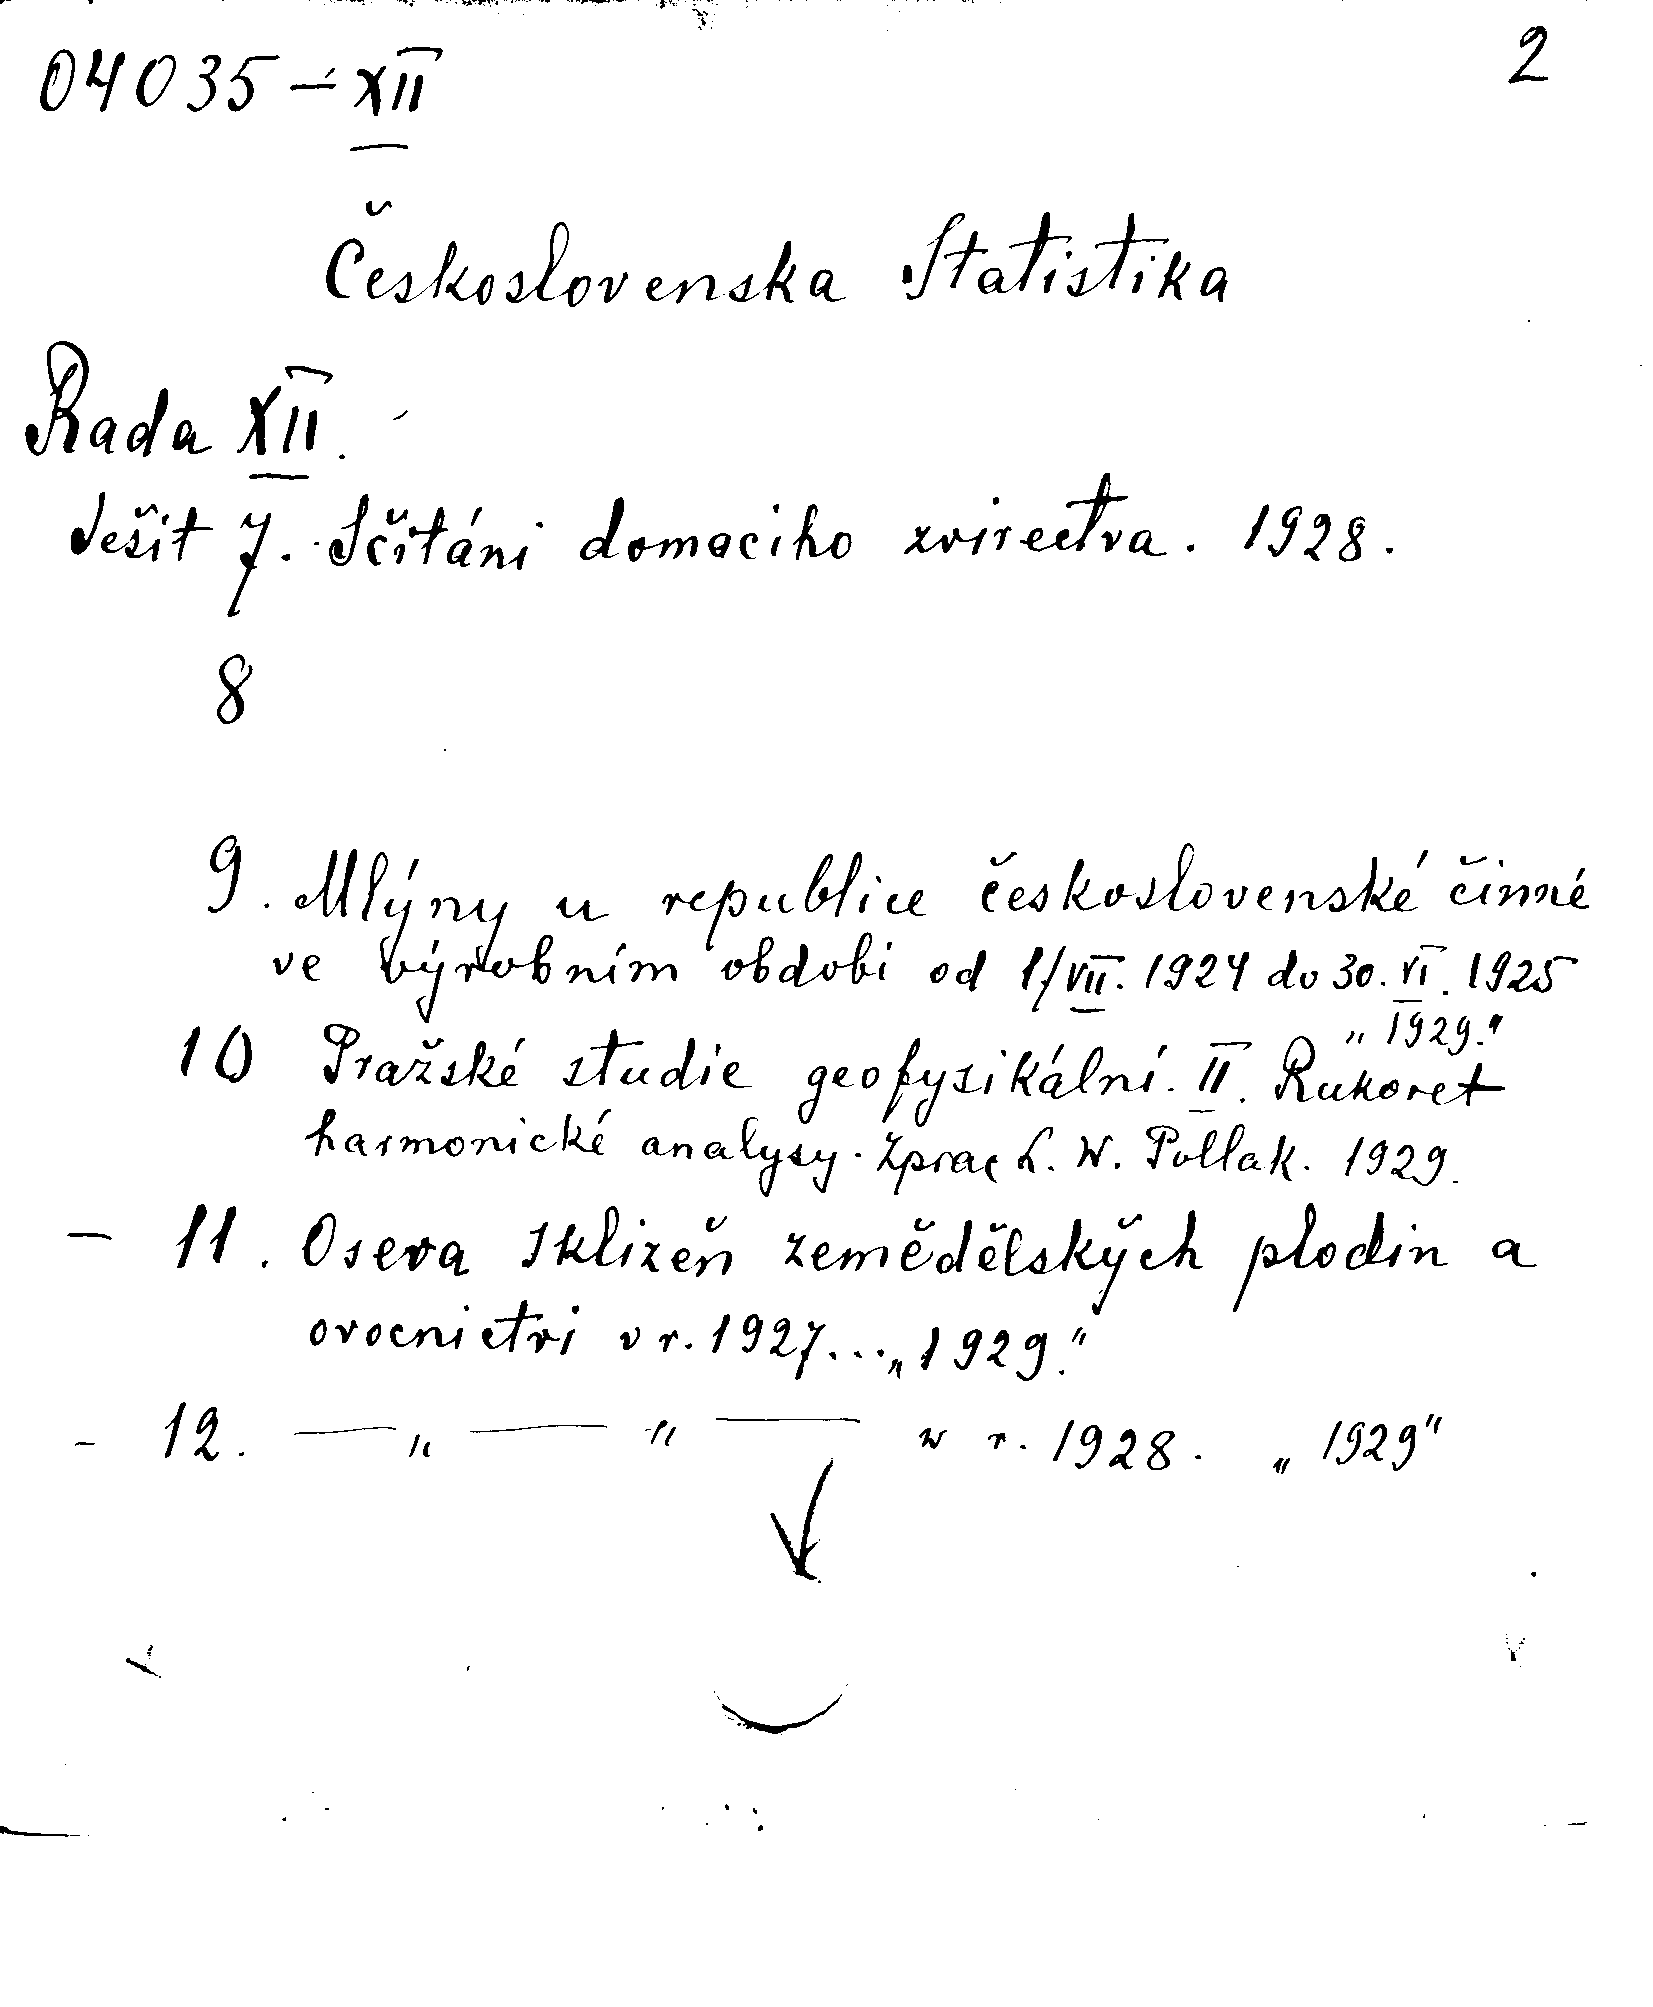 04035 – XII
2
Československa Statistika
Rada XII.
Sešit 7. Sčítáni domaciho zvirectva. 1928.
8
9. Mlýny u republice československé činné
ve výrobním obdobi od 1/VII. 1924 do 30. VI. 1925
„ 1929."
10 Pražské studie geofysikální. II. Rukoret
harmonické analysy. Zprac L. W. Pollak. 1929.
– 11. Oseva sklizeň zemědělských plodin a
ovocnictvi v r. 1927... „1929."
- 12. — „ — „ — w r. 1928. „ 1929"